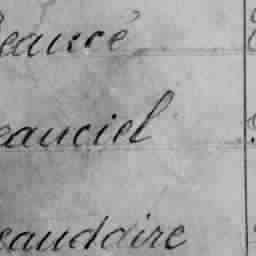 eaucé
eauciel
eaudaire